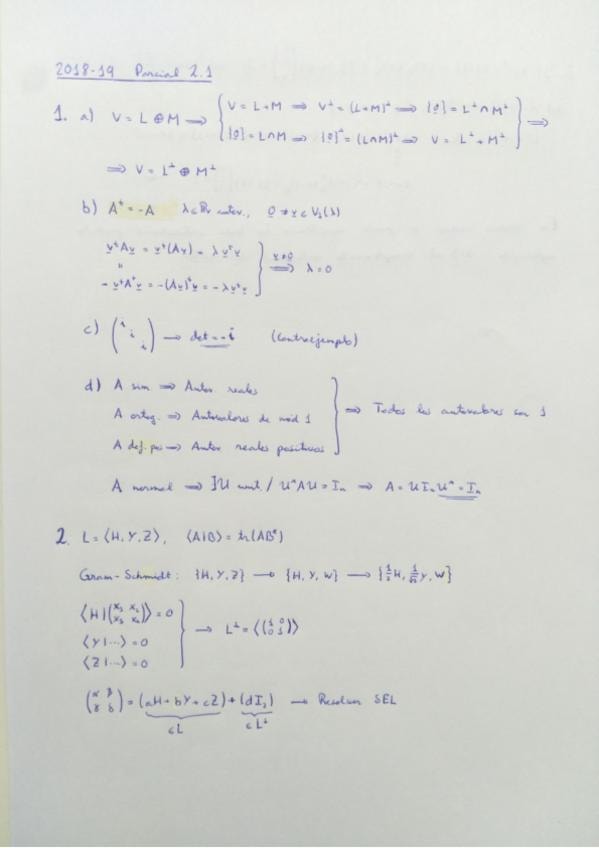 2018-19 Parcial 2.1
1. a) V = L ⊕ M ⟹ { V = L + M ⟹ V^⊥ = (L+M)^⊥ ⟹ {0} = L^⊥ ∩ M^⊥
{0} = L ∩ M ⟹ {0}^⊥ = (L∩M)^⊥ ⟹ V = L^⊥ + M^⊥ } ⟹
⟹ V = L^⊥ ⊕ M^⊥
b) A^t = -A λ ∈ ℝ autov., 0 ≠ v ∈ V_1(λ)
v^t A v = v^t (A v) = λ v^t v
"
- v^t A^t v = -(A v)^t v = -λ v^t v } v≠0 ⟹ λ = 0
c) (i i i) → det = -i (Contraejemplo)
d) A sim ⟹ Autov. reales
A ortog. ⟹ Autovalores de mód 1
A def. pos ⟹ Autov reales positivos } ⟹ Todos los autovalores son 1
A normal ⟹ ∃U unit. / U*AU = I_n ⟹ A = U I_n U* = I_n
2. L = ⟨H, Y, Z⟩, ⟨A|B⟩ = tr(AB*)
Gram-Schmidt: {H, Y, Z} → {H, Y, W} → {1/2 H, 1/√2 Y, W}
⟨H|(x_1 x_2 x_3 x_4)⟩ = 0
⟨Y|...⟩ = 0
⟨Z|...⟩ = 0 } → L^⊥ = ⟨(1 0 0 1)⟩
(α β γ δ) = (aH + bY + cZ) + (dI_2) → Resolver SEL
∈L ∈L^⊥